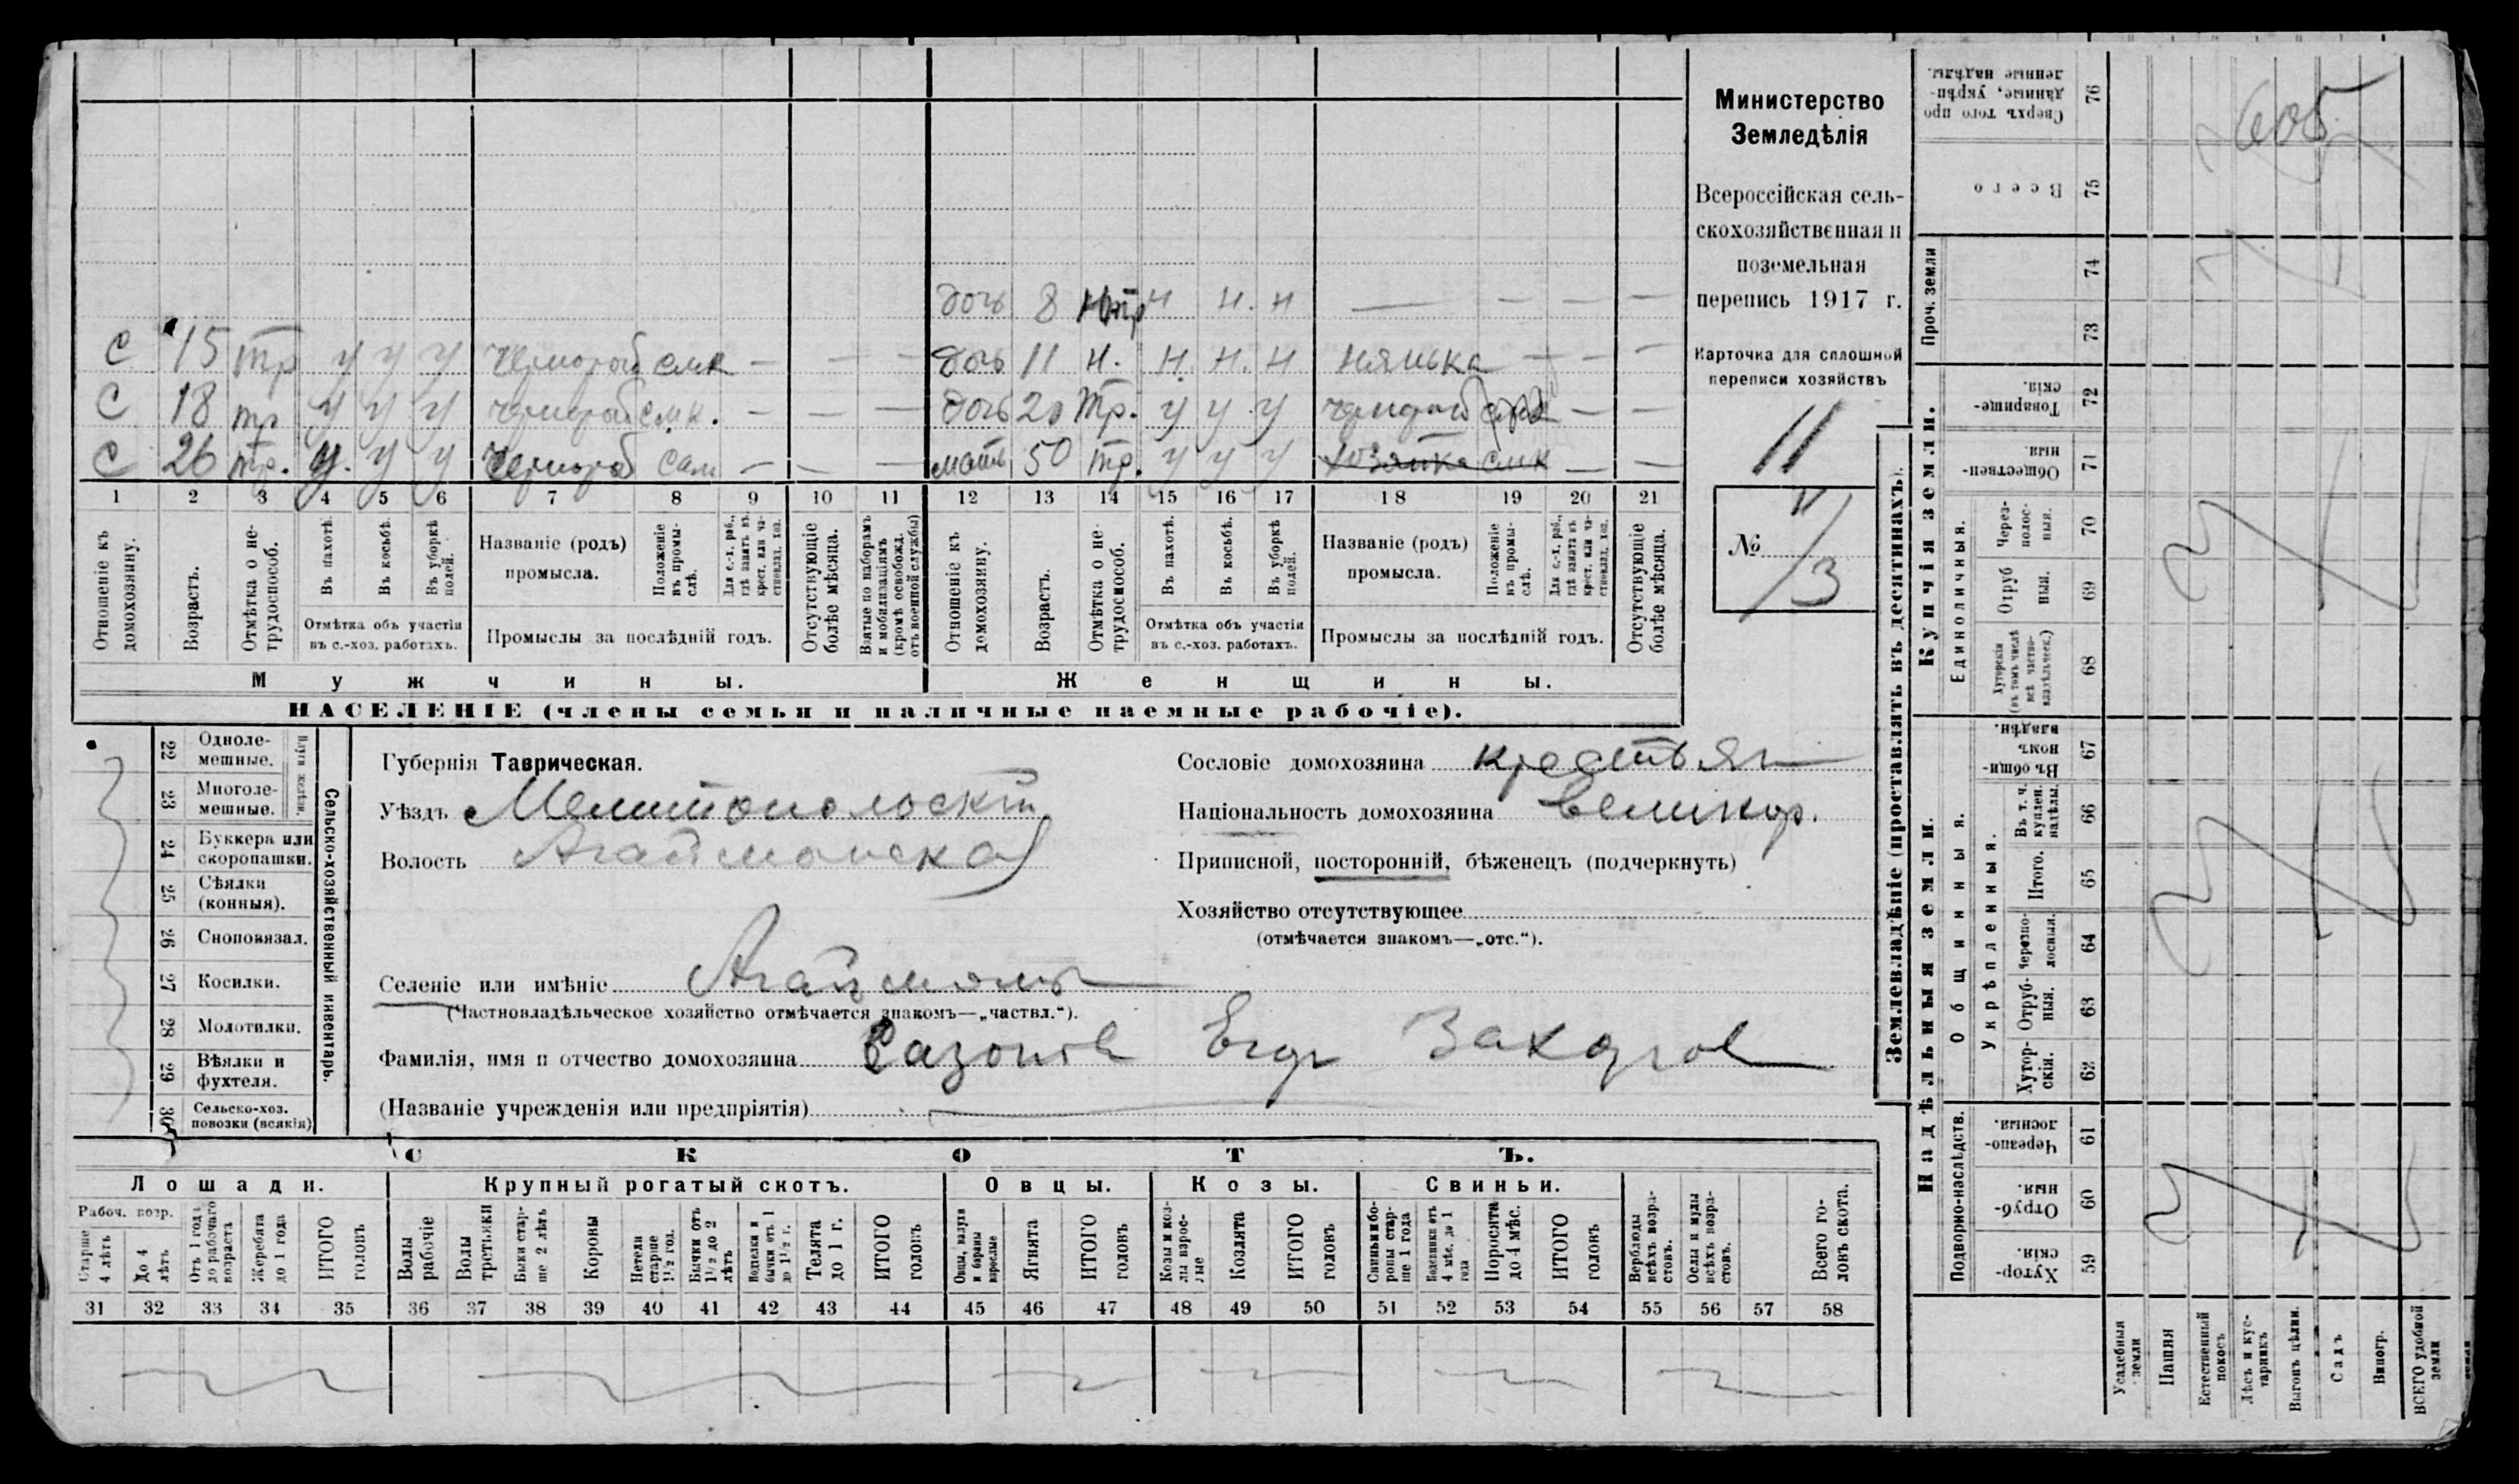 дочь 8 н тр н н. н — — — —
С 15 тр у у у чернораб смк — — — дочь 11 н. н. н. н нянька — — —
С 18 тр у у у чернораб смк. — — — дочь 20 тр. у у у чернораб — —
С 26 тр. у. у у чернораб сам — — — мать 50 тр. у у у хозяйка смк — —
1 2 3 4 5 6 7 8 9 10 11 12 13 14 15 16 17 18 19 20 21
Отношеніе къ домохозяину.
Возрастъ.
Отмѣтка о нетрудоспособ.
Въ пахотѣ.
Въ косьбѣ.
Въ уборкѣ полей.
Отмѣтка объ участіи
въ с.-хоз. работахъ.
Названіе (родъ)
промысла.
Положеніе въ промыслѣ.
Для с.-х. раб., гдѣ занятъ въ крест. или частновлад. хоз.
Промыслы за послѣдній годъ.
Отсутствующіе болѣе мѣсяца.
Взятые по наборамъ и мобилизаціямъ (кромѣ освобожд. отъ военной службы)
Отношеніе къ домохозяину.
Возрастъ.
Отмѣтка о нетрудоспособ.
Въ пахотѣ.
Въ косьбѣ.
Въ уборкѣ полей.
Отмѣтка объ участіи
въ с.-хоз. работахъ.
Названіе (родъ)
промысла.
Положеніе въ промыслѣ.
Для с.-х. раб., гдѣ занята въ крест. или частновлад. хоз.
Промыслы за послѣдній годъ.
Отсутствующіе болѣе мѣсяца.
Мужчины.
Женщины.
НАСЕЛЕНІЕ (члены семьи и наличные наемные рабочіе).
Министерство
Земледѣлія
Всероссійская сель-
скохозяйственная и
поземельная
перепись 1917 г.
Карточка для сплошной
переписи хозяйствъ
11
№ 11/3
22 Одноле-
мешные.
23 Многоле-
мешные.
24 Буккера или
скоропашки.
25 Сѣялки
(конныя).
26 Сноповязал.
27 Косилки.
28 Молотилки.
29 Вѣялки и
фухтеля.
30 Сельско-хоз.
повозки (всякія)
Сельско-хозяйственный инвентарь.
Губернія Таврическая.
Уѣздъ Мелитопольскій
Волость Агайманская
Селеніе или имѣніе Агайманъ
(Частновладѣльческое хозяйство отмѣчается знакомъ—„частвл.“).
Фамилія, имя и отчество домохозяина Сазонов Егор Захаров
(Названіе учрежденія или предпріятія)
Сословіе домохозяина крестьян
Національность домохозяина великор.
Приписной, посторонній, бѣженецъ (подчеркнуть)
Хозяйство отсутствующее
(отмѣчается знакомъ—„отс.“).
СКОТЪ.
Лошади.
Рабоч. возр.
Старше 4 лѣтъ
До 4 лѣтъ
Отъ 1 года до рабочаго возраста
Жеребята до 1 года
ИТОГО головъ
Крупный рогатый скотъ.
Волы рабочіе
Волы третьяки
Быки старше 2 лѣтъ
Коровы
Нетели старше 1½ год.
Бычки отъ 1½ до 2 лѣтъ
Телки и бычки отъ 1 до 1½ г.
Телята до 1 г.
ИТОГО головъ
Овцы.
Овцы, валухи и бараны взрослые
Ягнята
ИТОГО головъ
Козы.
Козы и козлы взрослые
Козлята
ИТОГО головъ
Свиньи.
Свиньи и боровы старше 1 года
Подсвинки отъ 4 мѣс. до 1 года
Поросята до 4 мѣс.
ИТОГО головъ
Верблюды всѣхъ возрастовъ.
Ослы и мулы всѣхъ возрастовъ.
Всего головъ скота.
31 32 33 34 35 36 37 38 39 40 41 42 43 44 45 46 47 48 49 50 51 52 53 54 55 56 57 58
Землевладѣніе (проставлять въ десятинахъ).
Купчія земли.
Надѣльныя земли.
Сверхъ того проданные, укрѣпленные надѣлы. 76
605
Всего 75
Проч. земли
74
73
Товарищескія. 72
Общественныя. 71
Единоличныя.
Черезполосныя. 70
Отрубныя. 69
Хуторскія (въ томъ числѣ всѣ частновладѣльческ.) 68
Общинныя.
Въ общинномъ владѣн. 67
Укрѣпленныя.
Въ т. ч. куплен. надѣлы. 66
Итого. 65
Черезполосныя. 64
Отрубныя. 63
Хуторскія. 62
Подворно-наслѣдств.
Черезполосныя. 61
Отрубныя 60
Хуторскія. 59
Усадебныя земли
Пашня
Естественный покосъ
Лѣсъ и кустарникъ
Выгонъ цѣлин.
Садъ
Виногр.
ВСЕГО удобной земли